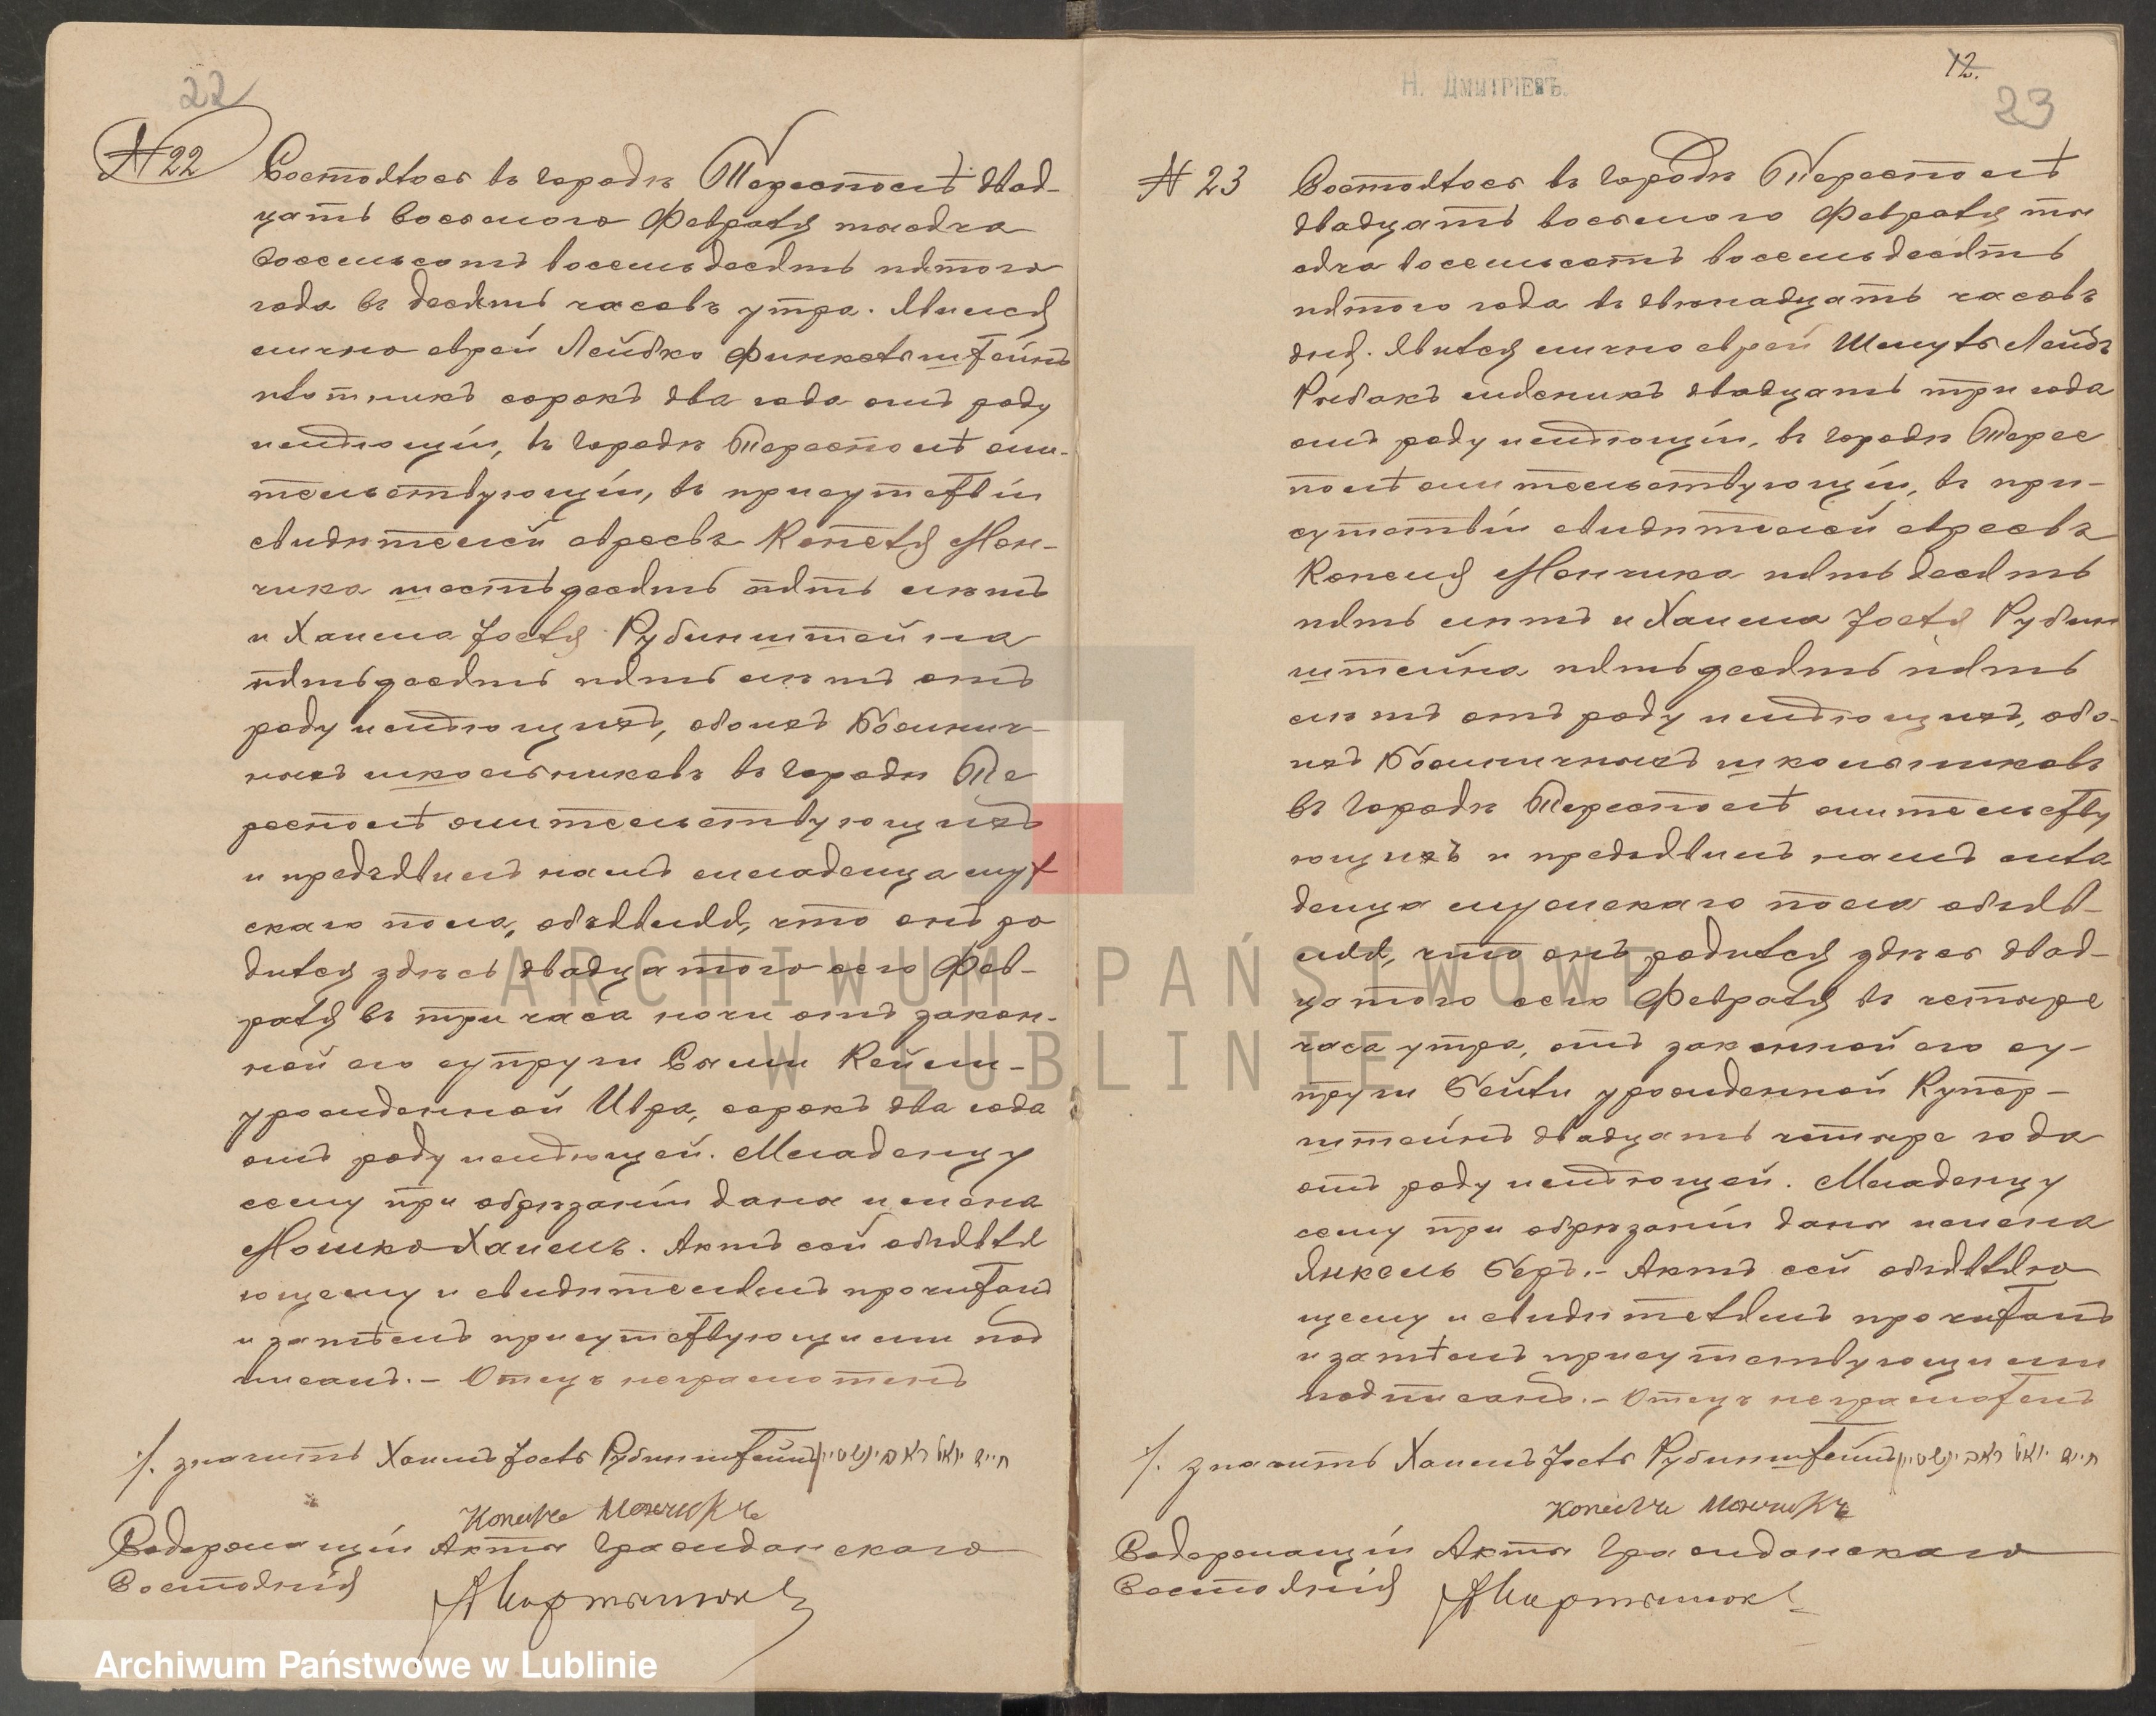 22
№ 22
Состоялось въ городѣ Тересполѣ двад-
цать восьмого Февраля тысяча
восемьсотъ восемьдесять пятого
года въ десять часовъ утра. Явился
лично еврей Лейбко Финкельштейнъ
плотникъ сорокъ два года отъ роду
имѣющій, въ городѣ Тересполѣ жи-
тельствующій, въ присутствіи
свидѣтелей евреевъ Копеля Мон-
чика шестьдесять пять лѣтъ
и Хаима Іоселя Рубинштейна
пятьдесять пять лѣтъ отъ
роду имѣющихъ, обоихъ божнич-
ныхъ школьниковъ въ городѣ Те
респолѣ жительствующихъ
и предъявилъ намъ младенца муж
скаго пола, объявляя, что онъ ро
дился здѣсь двадцатого сего Фев-
раля въ три часа ночи отъ закон-
ной его супруги Сыми Кейли-
урожденной Ивра, сорокъ два года
отъ роду имѣющей. Младенцу
сему при обрѣзаніи даны имена
Мошко Хаимъ. Актъ сей объявля
ющему и свидѣтелямъ прочитанъ
и затѣмъ присутствующими под
писанъ.- Отецъ неграмотенъ
./. значитъ Хаимъ Іосль Рубинштейнъ
Копель Мончикъ
Содержащій Акты Гражданскаго
Состоянія
Н. ДМИТРІЕВЪ.
12.
23
№ 23
Состоялось въ городѣ Тересполѣ
двадцать восьмого Февраля ты
сяча восемьсотъ восемьдесять
пятого года въ двѣнадцать часовъ
дня. Явился лично еврей Шмуль Лейбъ
Рыбакъ мясникъ двадцать три года
отъ роду имѣющій, въ городѣ Терес
полѣ жительствующій, въ при-
сутствіи свидѣтелей евреевъ
Копеля Мончика пятьдесять
пять лѣтъ и Хаима Іоселя Рубин
штейна пятьдесять пять
лѣтъ отъ роду имѣющихъ, обо-
ихъ божничныхъ школьниковъ
въ городѣ Тересполѣ жительству
ющихъ и предъявилъ намъ мла
денца мужескаго пола объяв-
ляя, что онъ родился здѣсь двад-
цатого сего Февраля въ четыре
часа утра, отъ законной его су-
пруги Бейли урожденной Купер-
штейнъ двадцать четыре года
отъ роду имѣющей. Младенцу
сему при обрѣзаніи даны имена
Янкель Беръ.- Актъ сей объявляю
щему и свидѣтелямъ прочитанъ
и затѣмъ присутствующими
подписанъ.- Отецъ неграмотенъ
./. значитъ Хаимъ Іосль Рубинштейнъ
Копель Мончикъ
Содержащій Акты Гражданскаго
Состоянія
ARCHIWUM PAŃSTWOWE
W LUBLINIE
Archiwum Państwowe w Lublinie